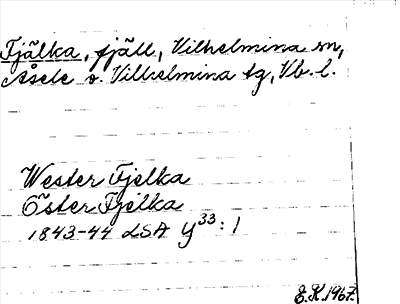 Fjälka, fjäll, Vilhelmina sn,
Åsele o. Vilhelmina tg, Vb. l.
Wester Fjelka
Öster Fjelka
1843-44 LSA Y33: 1
E.K. 1967.